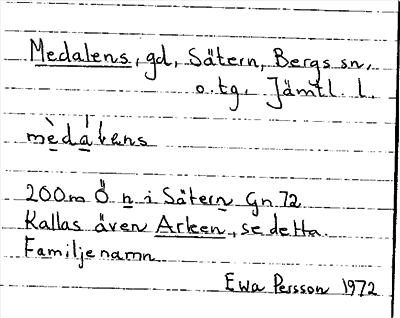 Medalens, gd, Sätern, Bergs sn,
o. tg. Jämtl. l.
mèdálens
200m Ö n i Sätern Gn 72
Kallas även Arken, se detta.
Familjenamn
Ewa Persson 1972